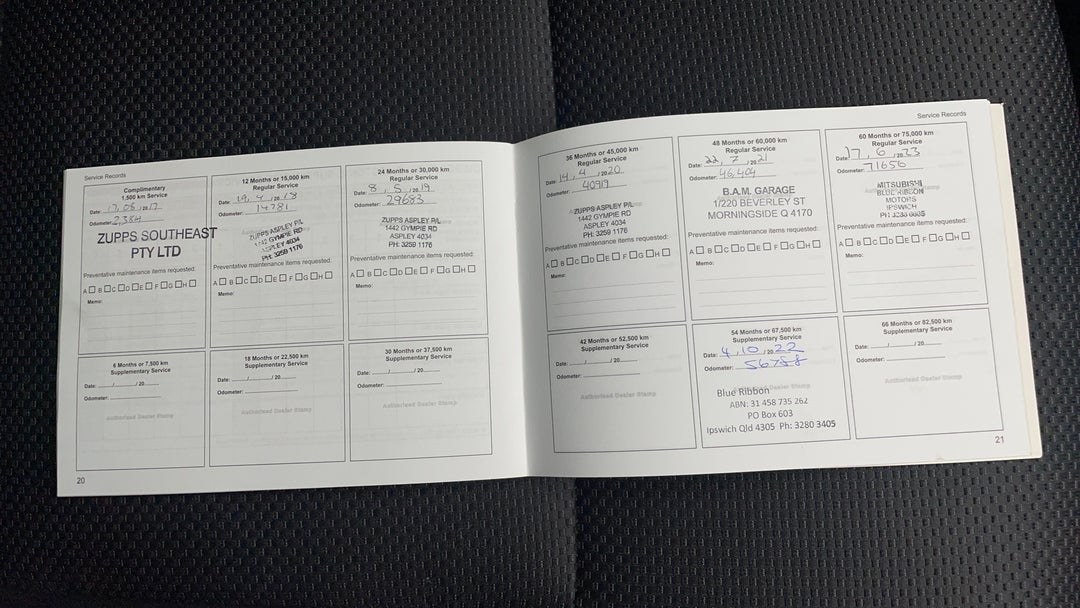 Service Records
Complimentary
1,500 km Service
Date: 17, 05, 2017
Odometer: 2384
ZUPPS SOUTHEAST
PTY LTD
Preventative maintenance items requested:
A B C D E F G H
Memo:
12 Months or 15,000 km
Regular Service
Date: 19, 4, 2018
Odometer: 14781
ZUPPS ASPLEY P/L
1442 GYMPIE RD
ASPLEY 4034
PH: 3259 1176
Preventative maintenance items requested:
A B C D E F G H
Memo:
24 Months or 30,000 km
Regular Service
Date: 8, 5, 2019
Odometer: 29683
ZUPPS ASPLEY P/L
1442 GYMPIE RD
ASPLEY 4034
PH: 3259 1176
Preventative maintenance items requested:
A B C D E F G H
Memo:
6 Months or 7,500 km
Supplementary Service
Date: / / 20
Odometer:
Authorised Dealer Stamp
18 Months or 22,500 km
Supplementary Service
Date: / / 20
Odometer:
Authorised Dealer Stamp
30 Months or 37,500 km
Supplementary Service
Date: / / 20
Odometer:
Authorised Dealer Stamp
20
Service Records
36 Months or 45,000 km
Regular Service
Date: 14, 4, 2020
Odometer: 40919
ZUPPS ASPLEY P/L
1442 GYMPIE RD
ASPLEY 4034
PH: 3259 1176
Preventative maintenance items requested:
A B C D E F G H
Memo:
48 Months or 60,000 km
Regular Service
Date: 22, 7, 2021
Odometer: 46,404
B.A.M. GARAGE
1/220 BEVERLEY ST
MORNINGSIDE Q 4170
Preventative maintenance items requested:
A B C D E F G H
Memo:
60 Months or 75,000 km
Regular Service
Date: 17, 6, 2023
Odometer: 71656
MITSUBISHI
BLUE RIBBON
MOTORS
IPSWICH
Preventative maintenance items requested:
A B C D E F G H
Memo:
42 Months or 52,500 km
Supplementary Service
Date: / / 20
Odometer:
Authorised Dealer Stamp
54 Months or 67,500 km
Supplementary Service
Date: 4, 10, 2022
Odometer: 56758
Blue Ribbon
ABN: 31 458 735 262
PO Box 603
Ipswich Qld 4305 Ph: 3280 3405
66 Months or 82,500 km
Supplementary Service
Date: / / 20
Odometer:
Authorised Dealer Stamp
21